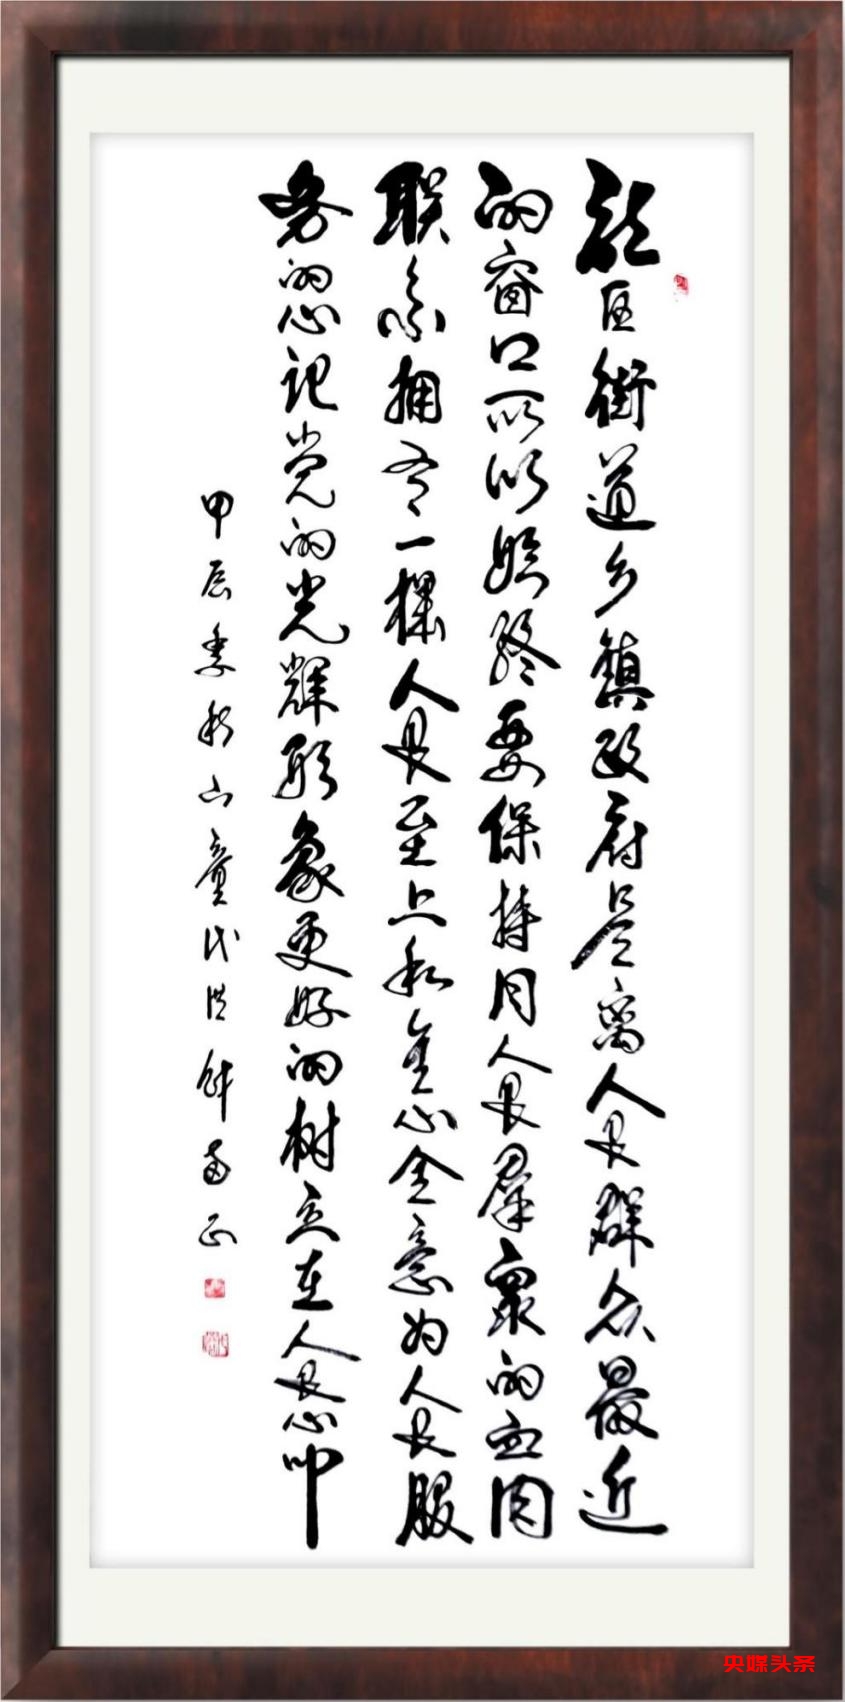 区街道乡镇政府是离人民群众最近
的窗口所以始终要保持同人民群众的血肉
联系拥有一棵人民至上和全心全意为人民服
务的心让党的光辉形象更好的树立在人民心中
甲辰季秋山童
央媒头条